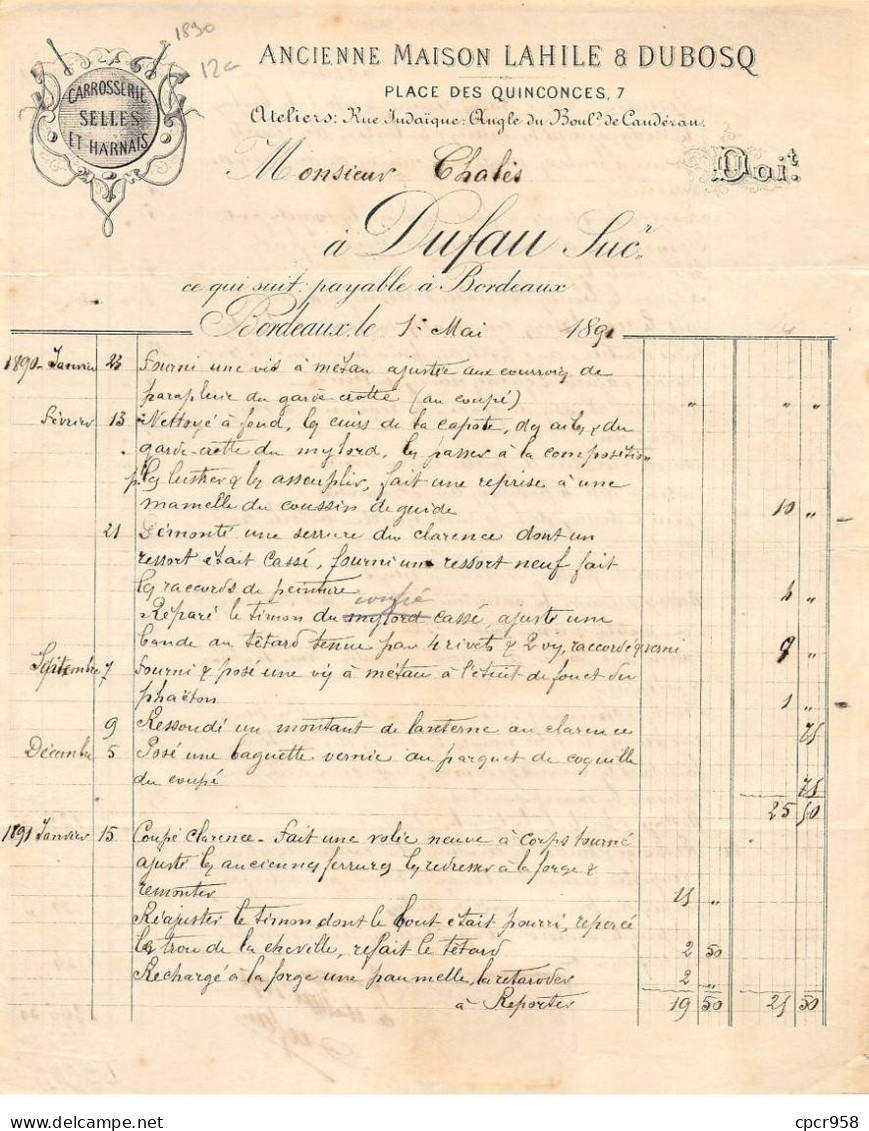 1890
12c
CARROSSERIE
SELLES
ET HARNAIS
ANCIENNE MAISON LAHILE & DUBOSQ
PLACE DES QUINCONCES, 7
Ateliers: Rue Judaïque: Angle du Boul.d de Caudéran.
Monsieur Chalès
Doit
à Dufau Suc.r
ce qui suit: payable à Bordeaux
Bordeaux, le 1r Mai 1891
1890 Janvier 23 Fourni une vis à métau ajustée aux courroies de
parapluie du garde-crotte (au coupé) " " "
Février 13 Nettoyé à fond, les cuirs de la capote, des ailes & du
garde-crotte du mylord, les passer à la composition
p. les lustrer & les assouplir, fait une reprise à une
mamelle du coussin de guide 10 "
21 Démonté une serrure du clarence dont un
ressort était cassé, fourni un ressort neuf fait
les raccords de peinture 4 "
coupé
Réparé le timon du mylord cassé, ajusté une
bande au tétard tenue par 4 rivets & 2 vis, raccordé & verni 9 "
Septembre 7 Fourni & posé une vis à métau à l'étui de fouet du
phaëton 1 "
9 Ressoudé un montant de lanterne au clarence 75
Décembre 5 Posé une baguette vernie au parquet de coquille
du coupé 75
25 50
1891 Janvier 15 Coupé clarence - Fait une volée neuve à corps tourné
ajusté les anciennes ferrures les redresser à la forge &
remonter 15 "
Réajuster le timon dont le bout était pourri, repercé
les trou de la cheville, refait le tétard 2 50
Rechargé à la forge une paumelle, la retarauder 2 "
à Reporter 19 50 25 50
cpcr958